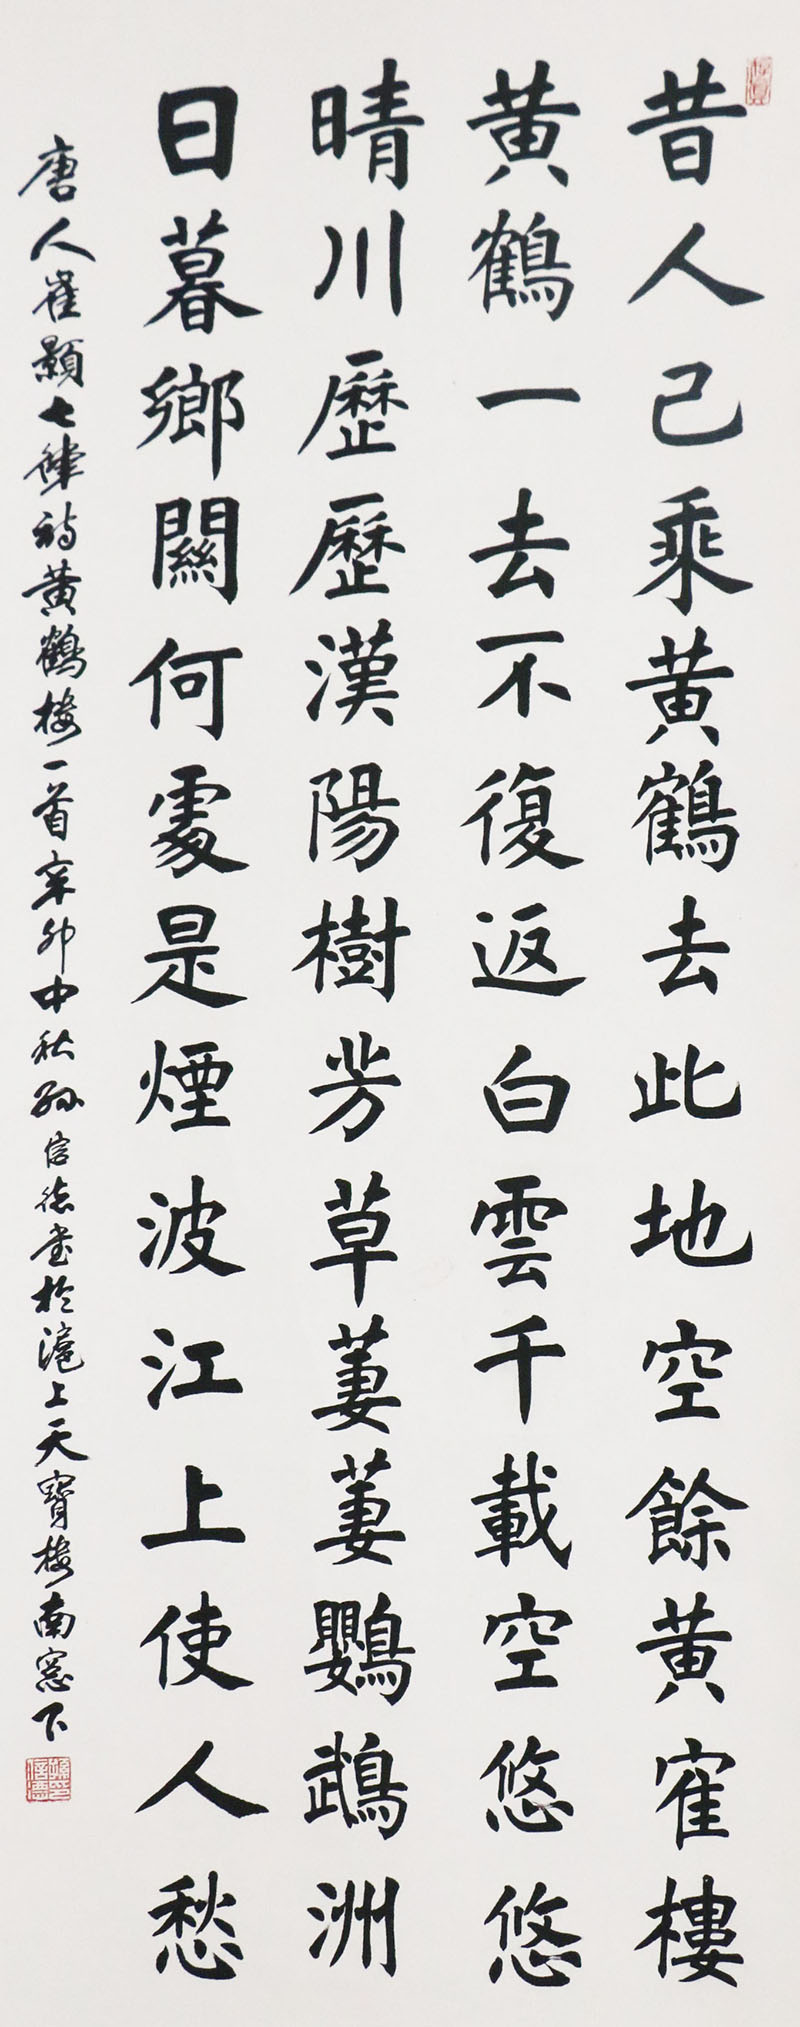 昔人已乘黃鶴去此地空餘黃隺樓
黃鶴一去不復返白雲千載空悠悠
晴川歷歷漢陽樹芳草萋萋鸚鵡洲
日暮鄉關何處是煙波江上使人愁
唐人崔顥七律詩黃鶴樓一首辛卯中秋孫信德書於滬上天寶樓南窓下
孫信德印